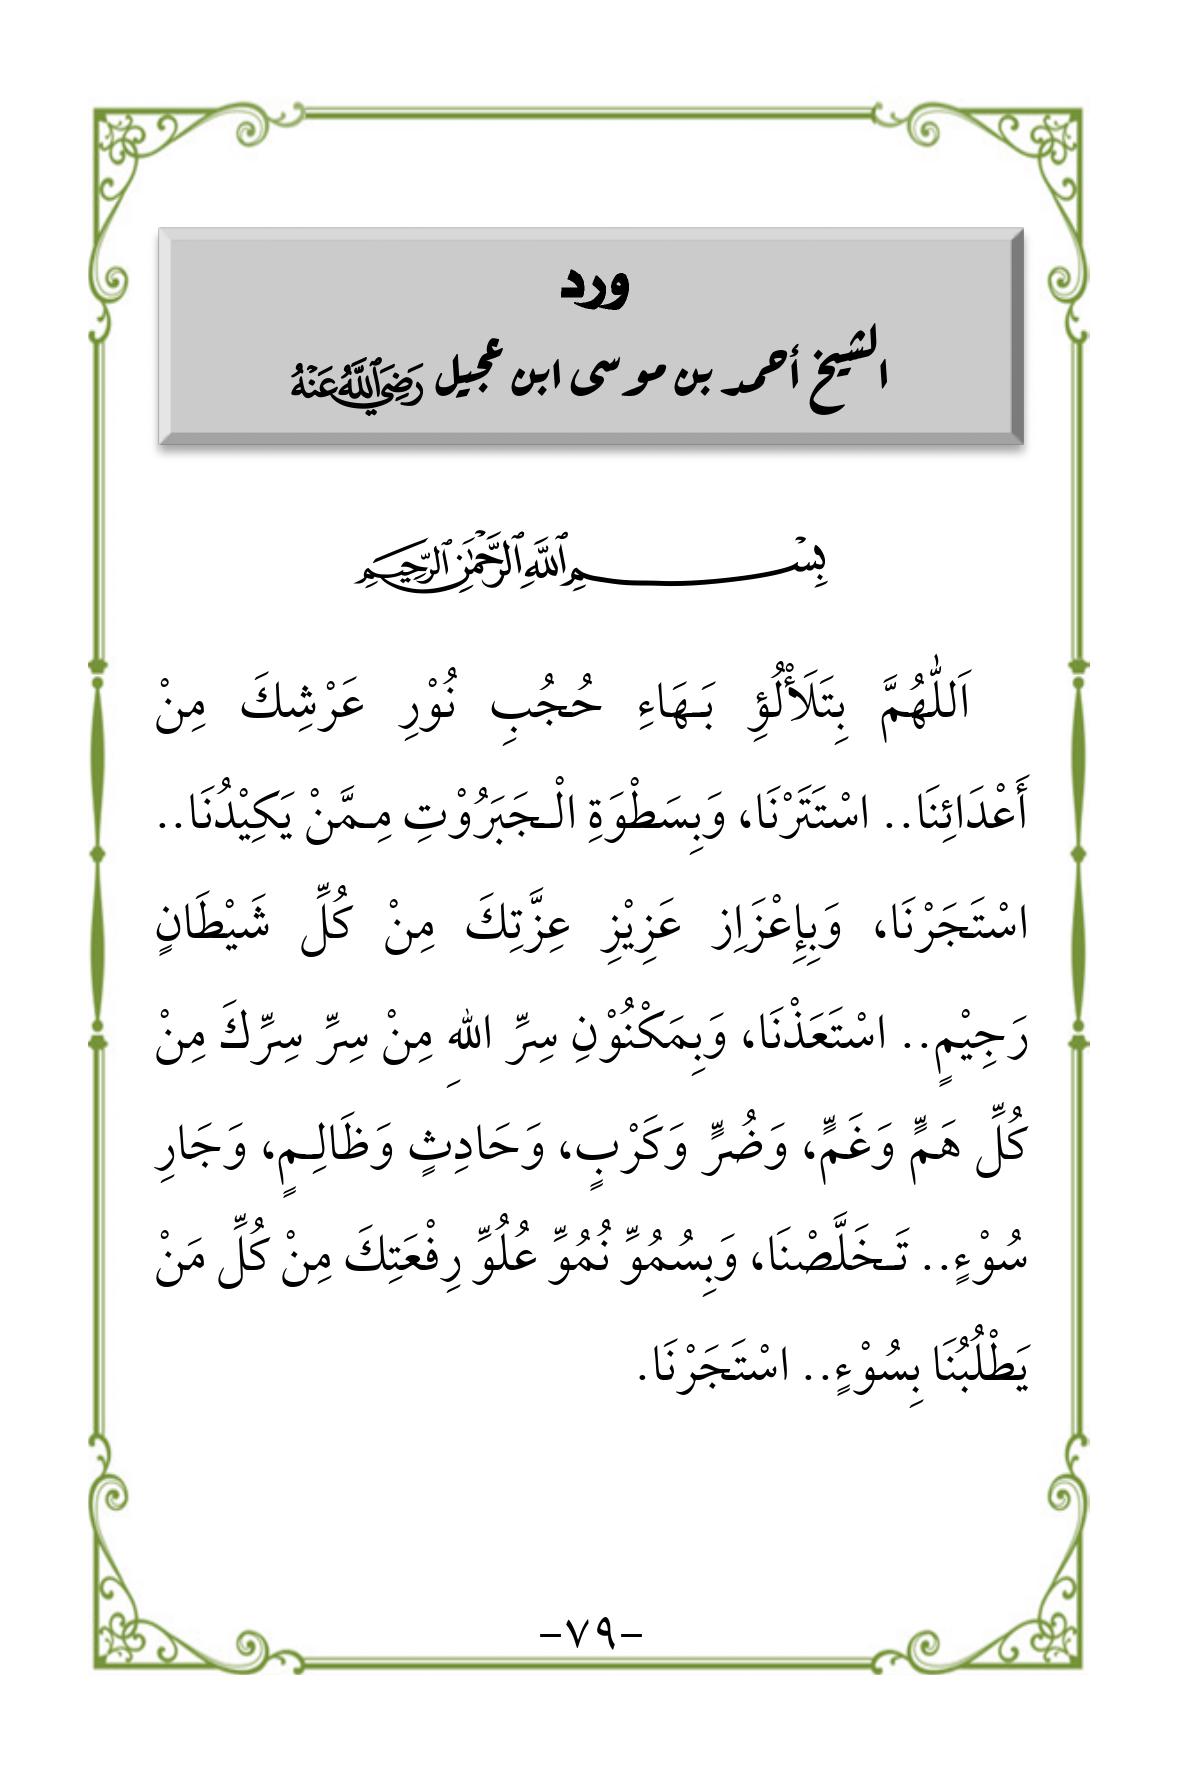 ورد
الشيخ أحمد بن موسى ابن عجيل رَضِيَ اللَّهُ عَنْهُ
بِسْمِ اللَّهِ الرَّحْمَٰنِ الرَّحِيمِ
اَللّٰهُمَّ بِتَلَأْلُؤِ بَـهَاءِ حُجُبِ نُوْرِ عَرْشِكَ مِنْ
أَعْدَائِنَا.. اسْتَتَرْنَا، وَبِسَطْوَةِ الْـجَبَرُوْتِ مِـمَّنْ يَكِيْدُنَا..
اسْتَجَرْنَا، وَبِإِعْزَازِ عَزِيْزِ عِزَّتِكَ مِنْ كُلِّ شَيْطَانٍ
رَجِيْمٍ.. اسْتَعَذْنَا، وَبِمَكْنُوْنِ سِرِّ اللهِ مِنْ سِرِّ سِرِّكَ مِنْ
كُلِّ هَمٍّ وَغَمٍّ، وَضُرٍّ وَكَرْبٍ، وَحَادِثٍ وَظَالِـمٍ، وَجَارِ
سُوْءٍ.. تَـخَلَّصْنَا، وَبِسُمُوِّ نُمُوِّ عُلُوِّ رِفْعَتِكَ مِنْ كُلِّ مَنْ
يَطْلُبُنَا بِسُوْءٍ.. اسْتَجَرْنَا.
-٧٩-